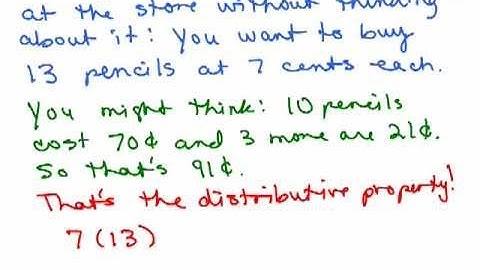 at the store without thinking
about it: You want to buy
13 pencils at 7 cents each.
You might think: 10 pencils
cost 70¢ and 3 more are 21¢.
So that's 91¢.
That's the distributive property!
7(13)